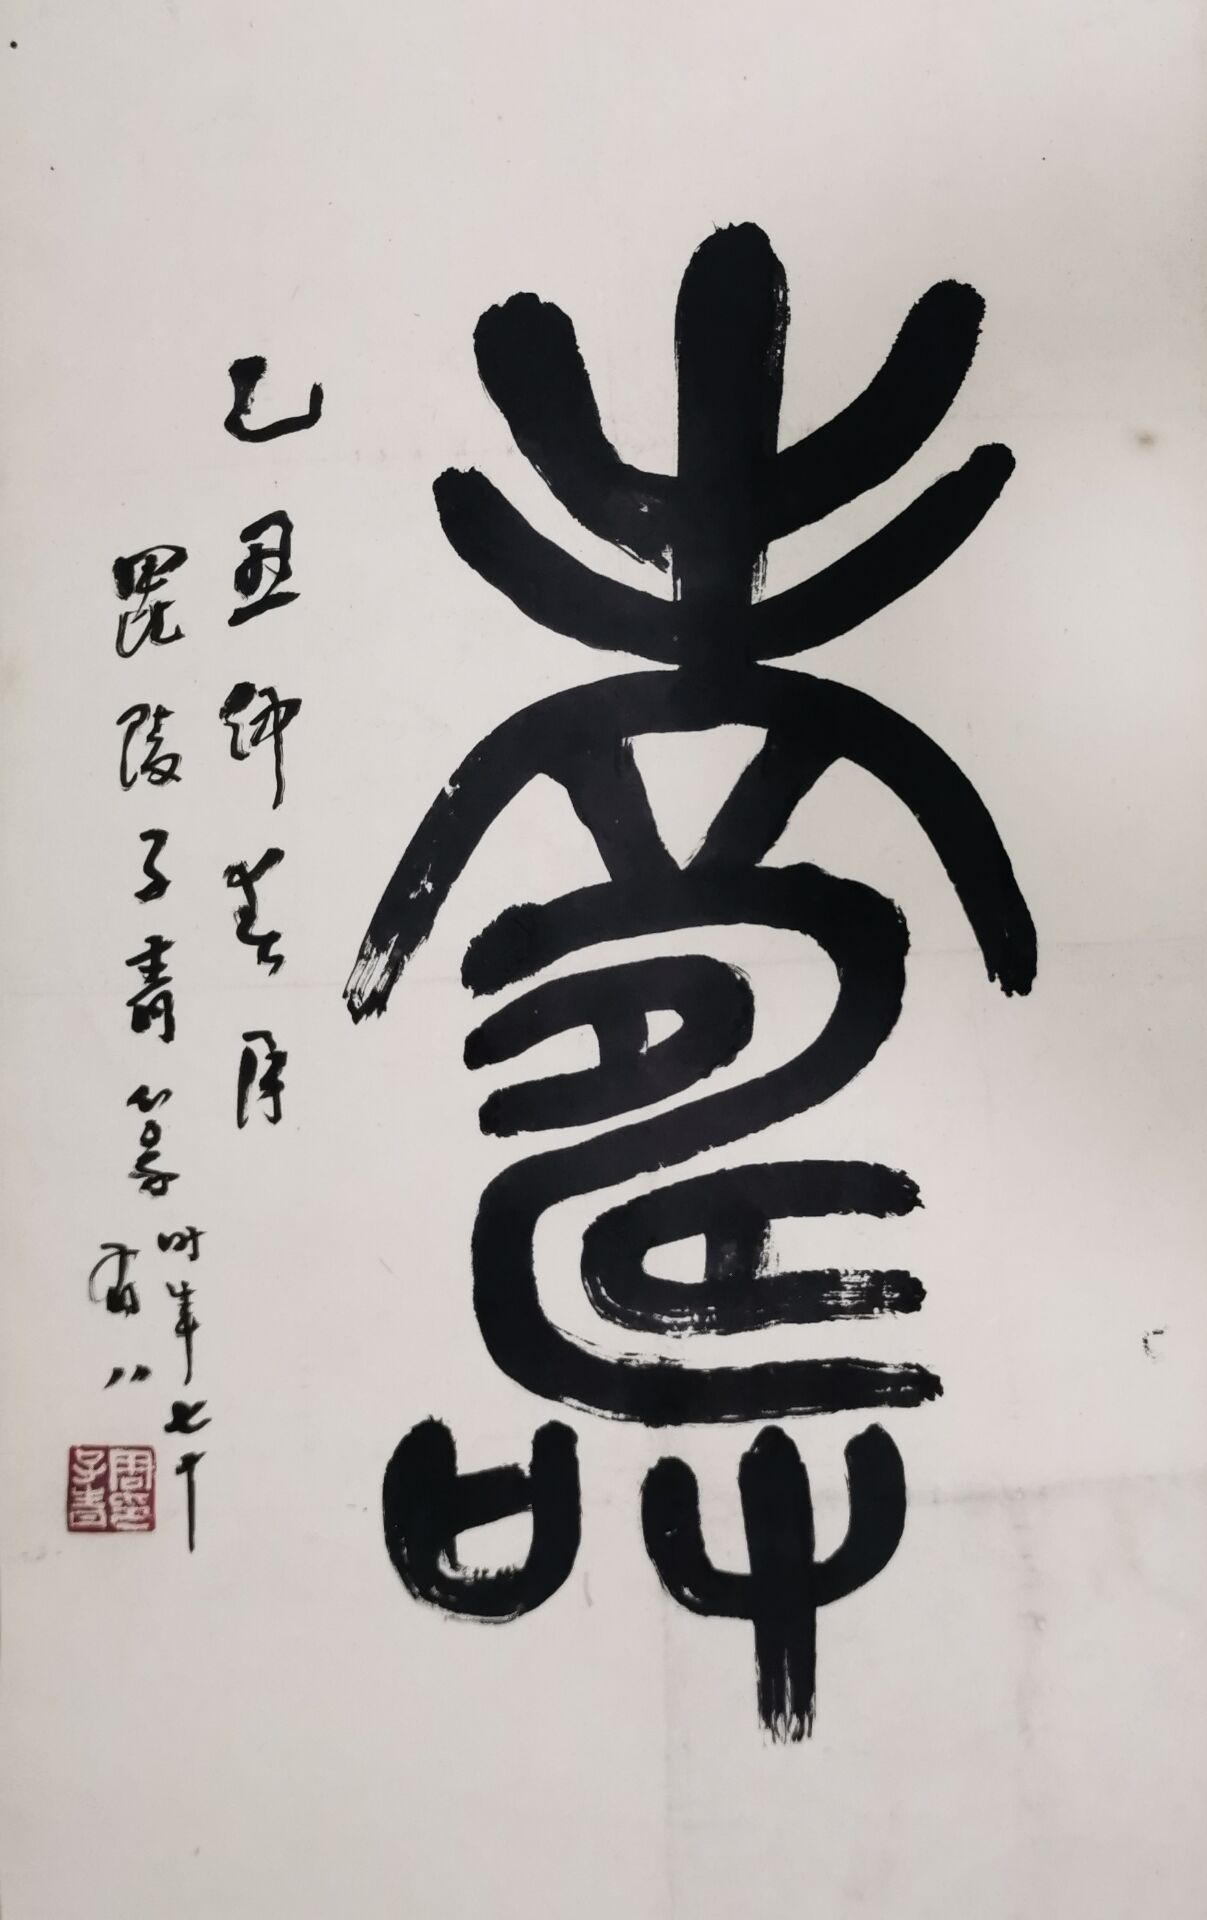 壽
乙丑仲春月
毘陵子青篆
時年七十
有八
周熙
子青